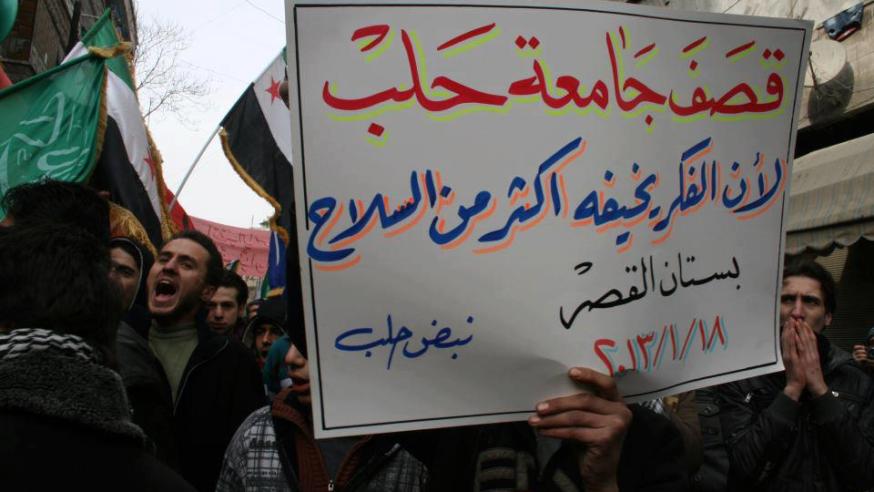 قصفَ جَامعة حَلب
لأن الفكر يخيفه اكثر من السلاح
بستان القصر
٢٠١٣/١/١٨
نبض حلب